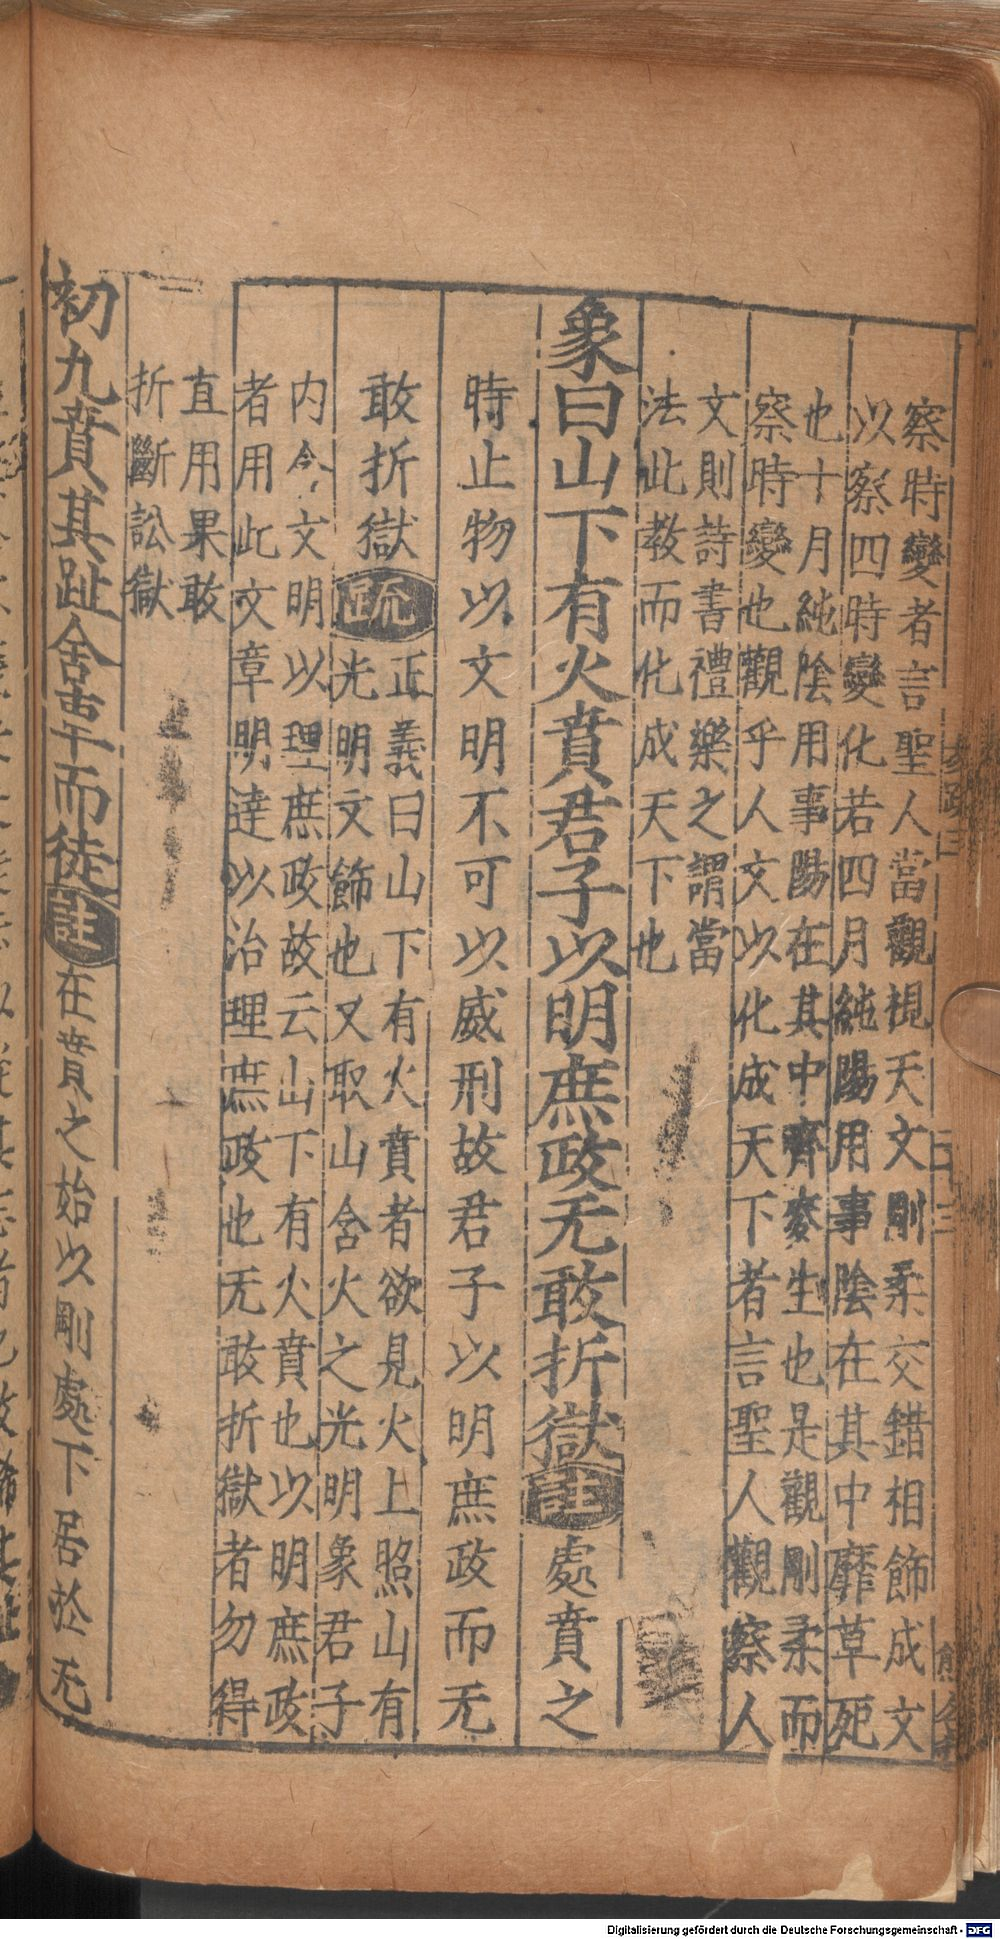 察時變者言聖人當觀視天文剛柔交錯相飾成文
以察四時變化若四月純陽用事陰在其中靡草死
也十月純陰用事陽在其中齊麥生也是觀剛柔而
察時變也觀乎人文以化成天下者言聖人觀察人
文則詩書禮樂之謂當
法此教而化成天下也
象曰山下有火賁君子以明庶政无敢折獄註處賁之
時止物以文明不可以威刑故君子以明庶政而无
敢折獄疏
正義曰山下有火賁者欲見火上照山有
光明文飾也又取山含火之光明象君子
内今文明以理庶政故云山下有火賁也以明庶政
者用此文章明達以治理庶政也无敢折獄者勿得
直用果敢
折斷訟獄
初九賁其趾舍車而徒註在賁之始以剛處下居於无
Digitalisierung gefördert durch die Deutsche Forschungsgemeinschaft - DFG